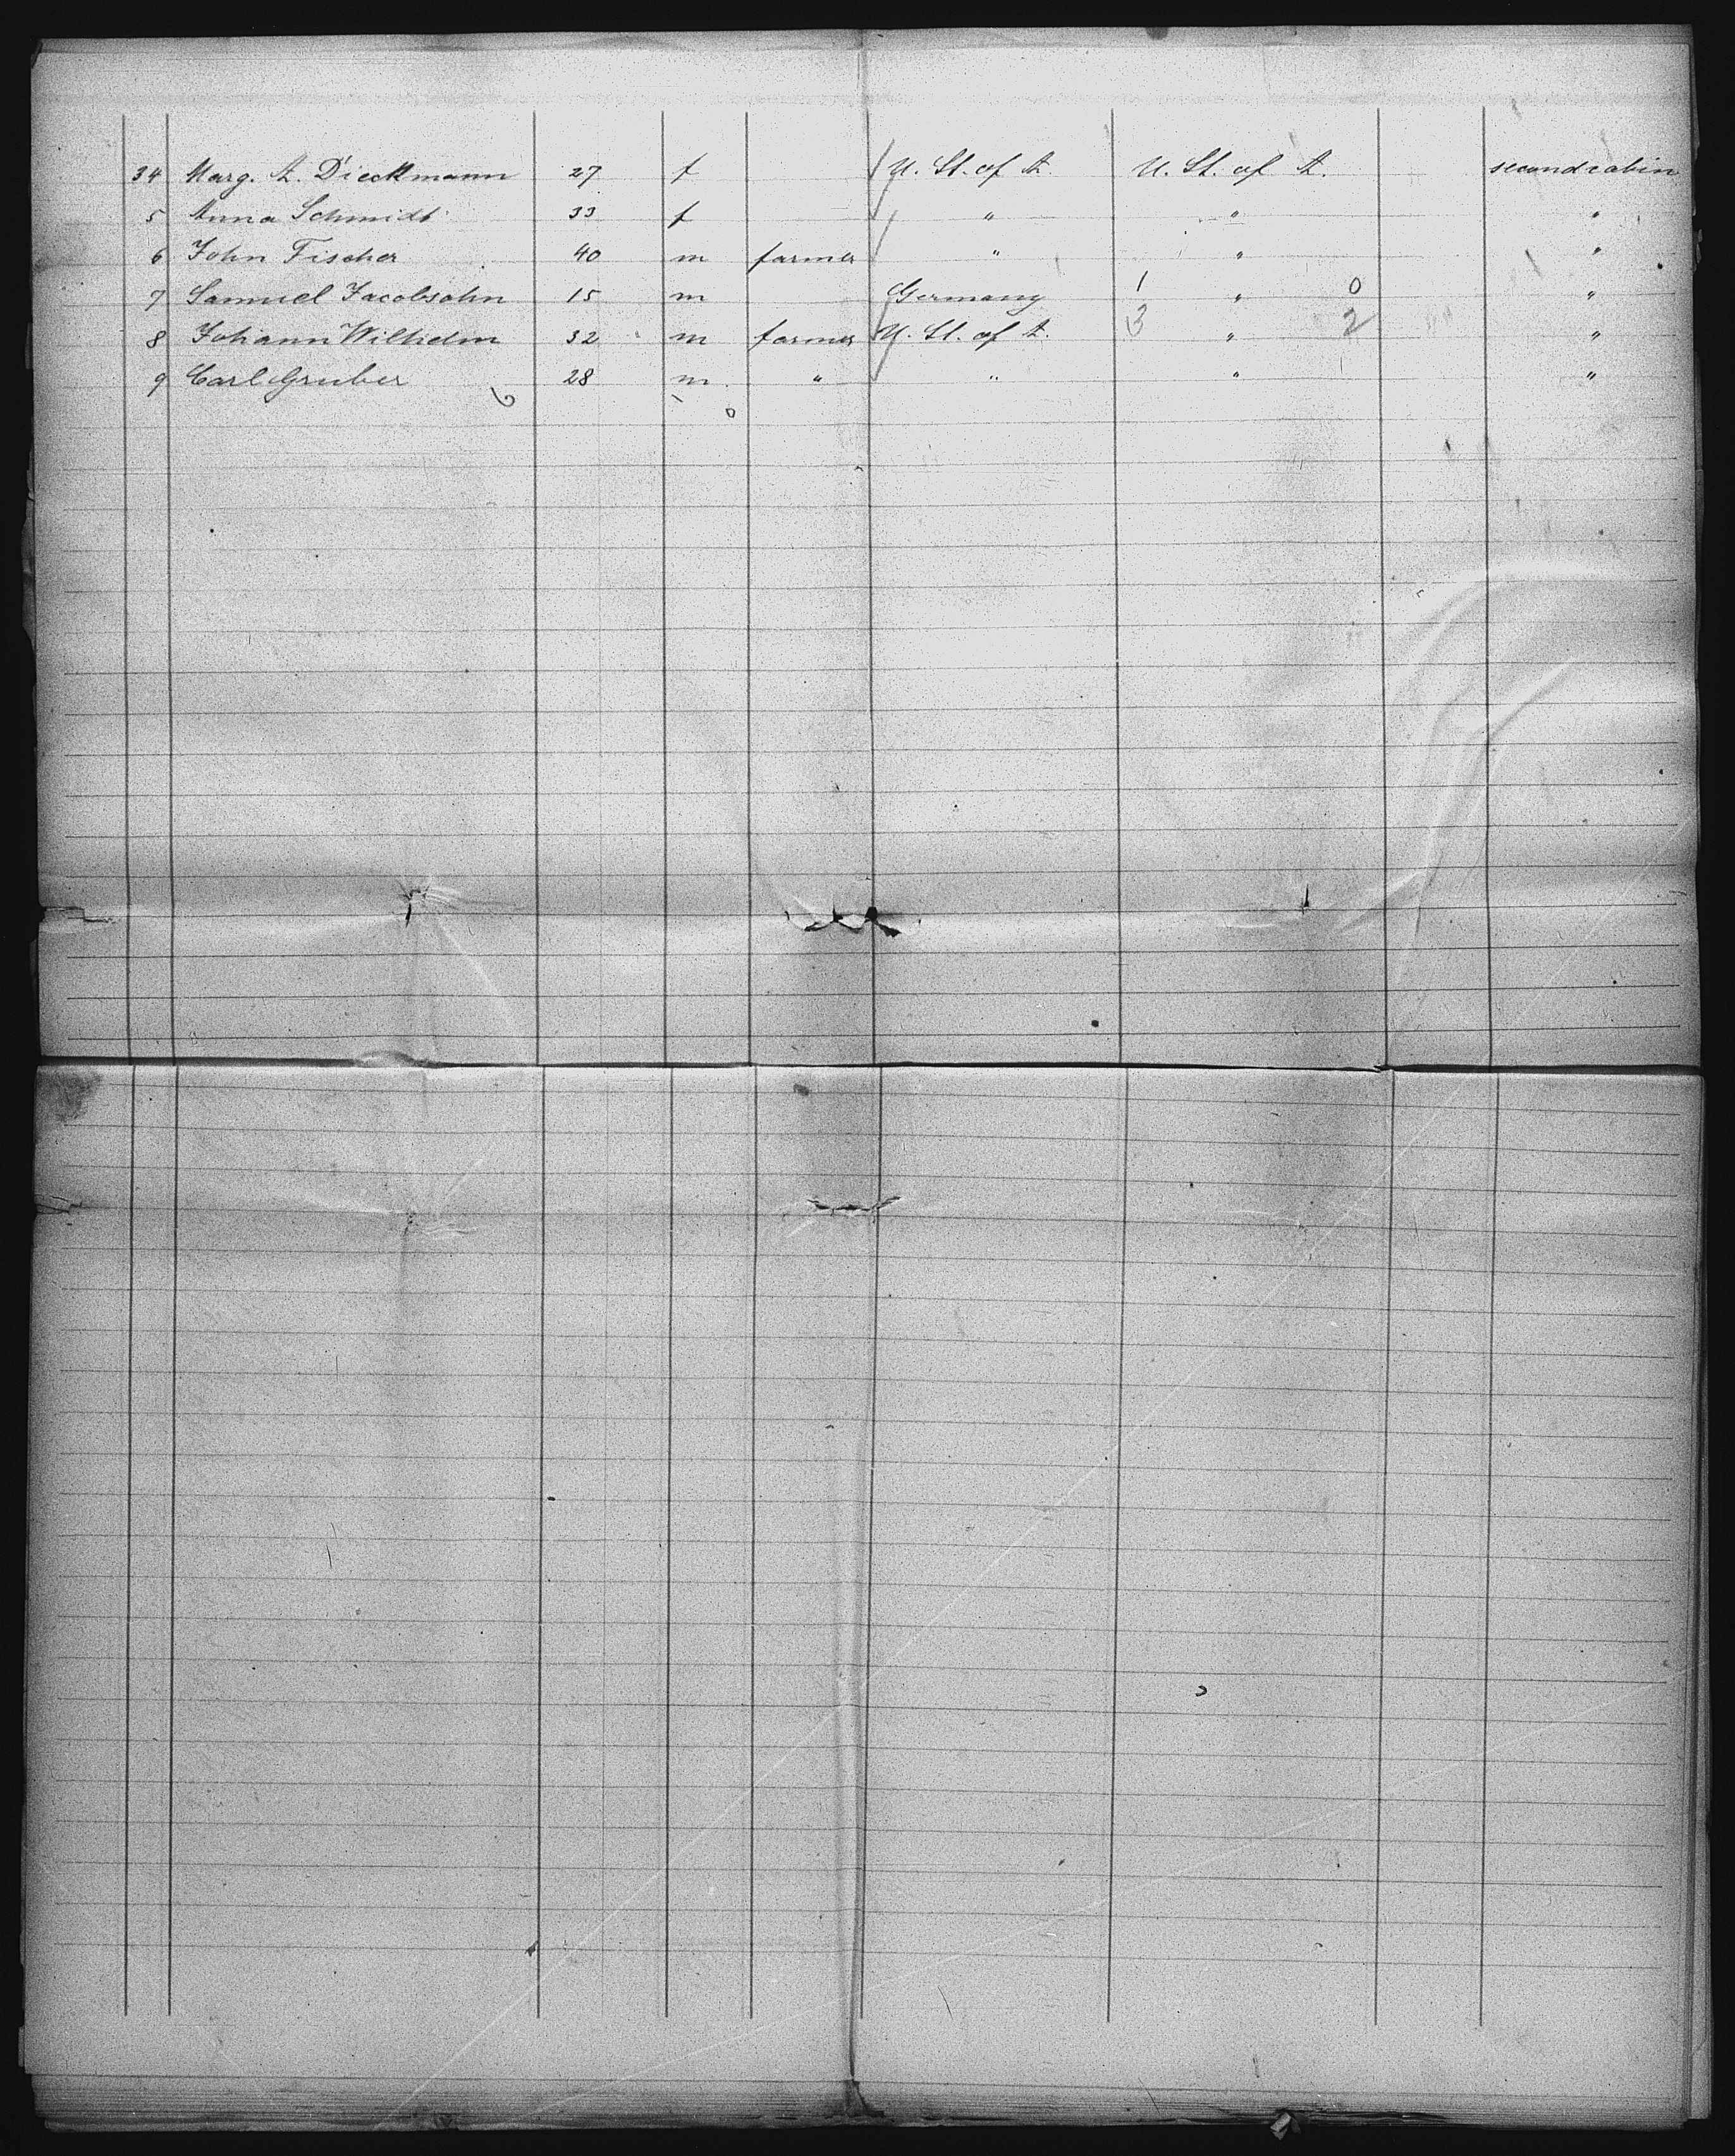 34 Marg. A. Dieckmann 27 f U. St. of A. U. St. of A. second cabin
5 Anna Schmidt 33 f " " "
6 John Fischer 40 m farmer " " "
7 Samuel Jacobsohn 15 m Germany 1 " 0 "
8 Johann Wilhelm 32 m farmer U. St. of A. 3 " 2 "
9 Carl Gruber 28 m " " " "
6 0